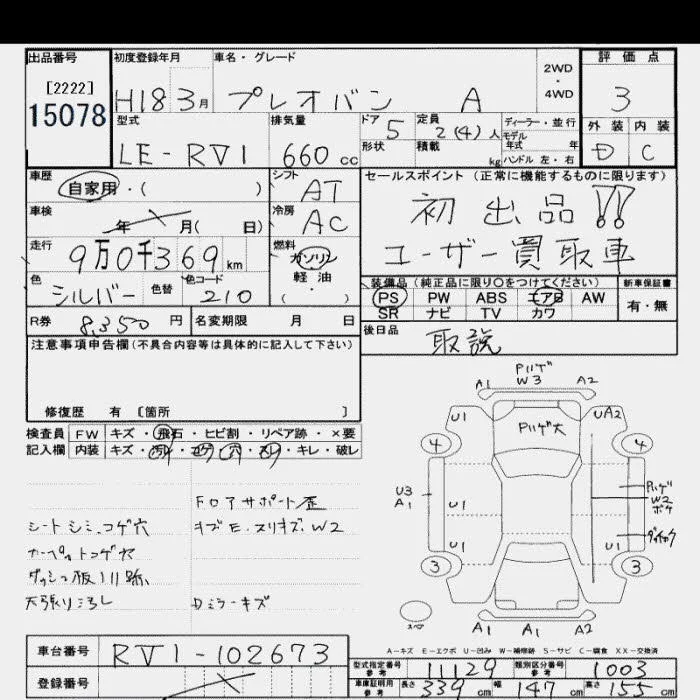 出品番号
[2222]
15078
初度登録年月
H18 3月
車名・グレード
プレオバン A
2WD
・
4WD
評価点
3
外装 内装
D C
型式
LE-RV1
排気量
660 cc
ドア 5
形状
定員 2(4)人
積載 kg
ディーラー・並行
モデル
年式 年
ハンドル 左・右
車歴
自家用・( )
シフト
AT
車検
年 月( 日)
冷房
AC
走行
9万0千369 km
燃料
ガソリン
軽油
( ・ )
色
シルバー
色替
色コード
210
セールスポイント (正常に機能するものに限ります)
初出品!!
ユーザー買取車
装備品(純正品に限り○をつけてください)
PS PW ABS エアB AW
SR ナビ TV カワ
新車保証書
有・無
R券 8,350 円
名変期限 月 日
後日品
取説
注意事項申告欄(不具合内容等は具体的に記入して下さい)
修復歴 有 [箇所 ]
検査員
記入欄
FW キズ・飛石・ヒビ割・リペア跡・×要
内装 キズ・汚れ・コゲ・穴・スレ・キレ・破レ
フロアサポート歪
シートシミ、コゲ穴
キズE、スリキズ、W2
カーペットコゲ穴
天張り汚れ
Dミラーキズ
A1
Pハゲ
W3
A2
U1
Pハゲ大
UA2
4
4
U3
A1
U1
Pハゲ
W2
ボケ
U1
U1
3
3
スペア
A1
A1
A2
A-キズ E-エクボ U-凹み W-補修跡 S-サビ C-腐食 XX-交換済
車台番号
RV1-102673
登録番号
型式指定番号
参考
11129
類別区分番号
参考
1003
車庫証明用
参考
長さ 339 cm
幅 147 cm
高さ 155 cm